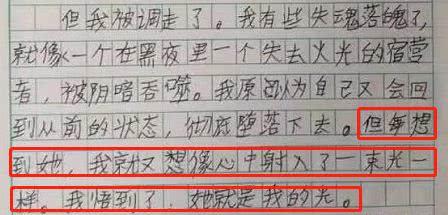 但我被调走了。我有些失魂落魄了,
就像一个在黑夜里一个失去火光的宿营
者,被阴暗吞噬。我原以为自己又会回
到从前的状态,彻底堕落下去。但每想
到她,我就又想像心中射入了一束光一
样。我悟到了,她就是我的光。